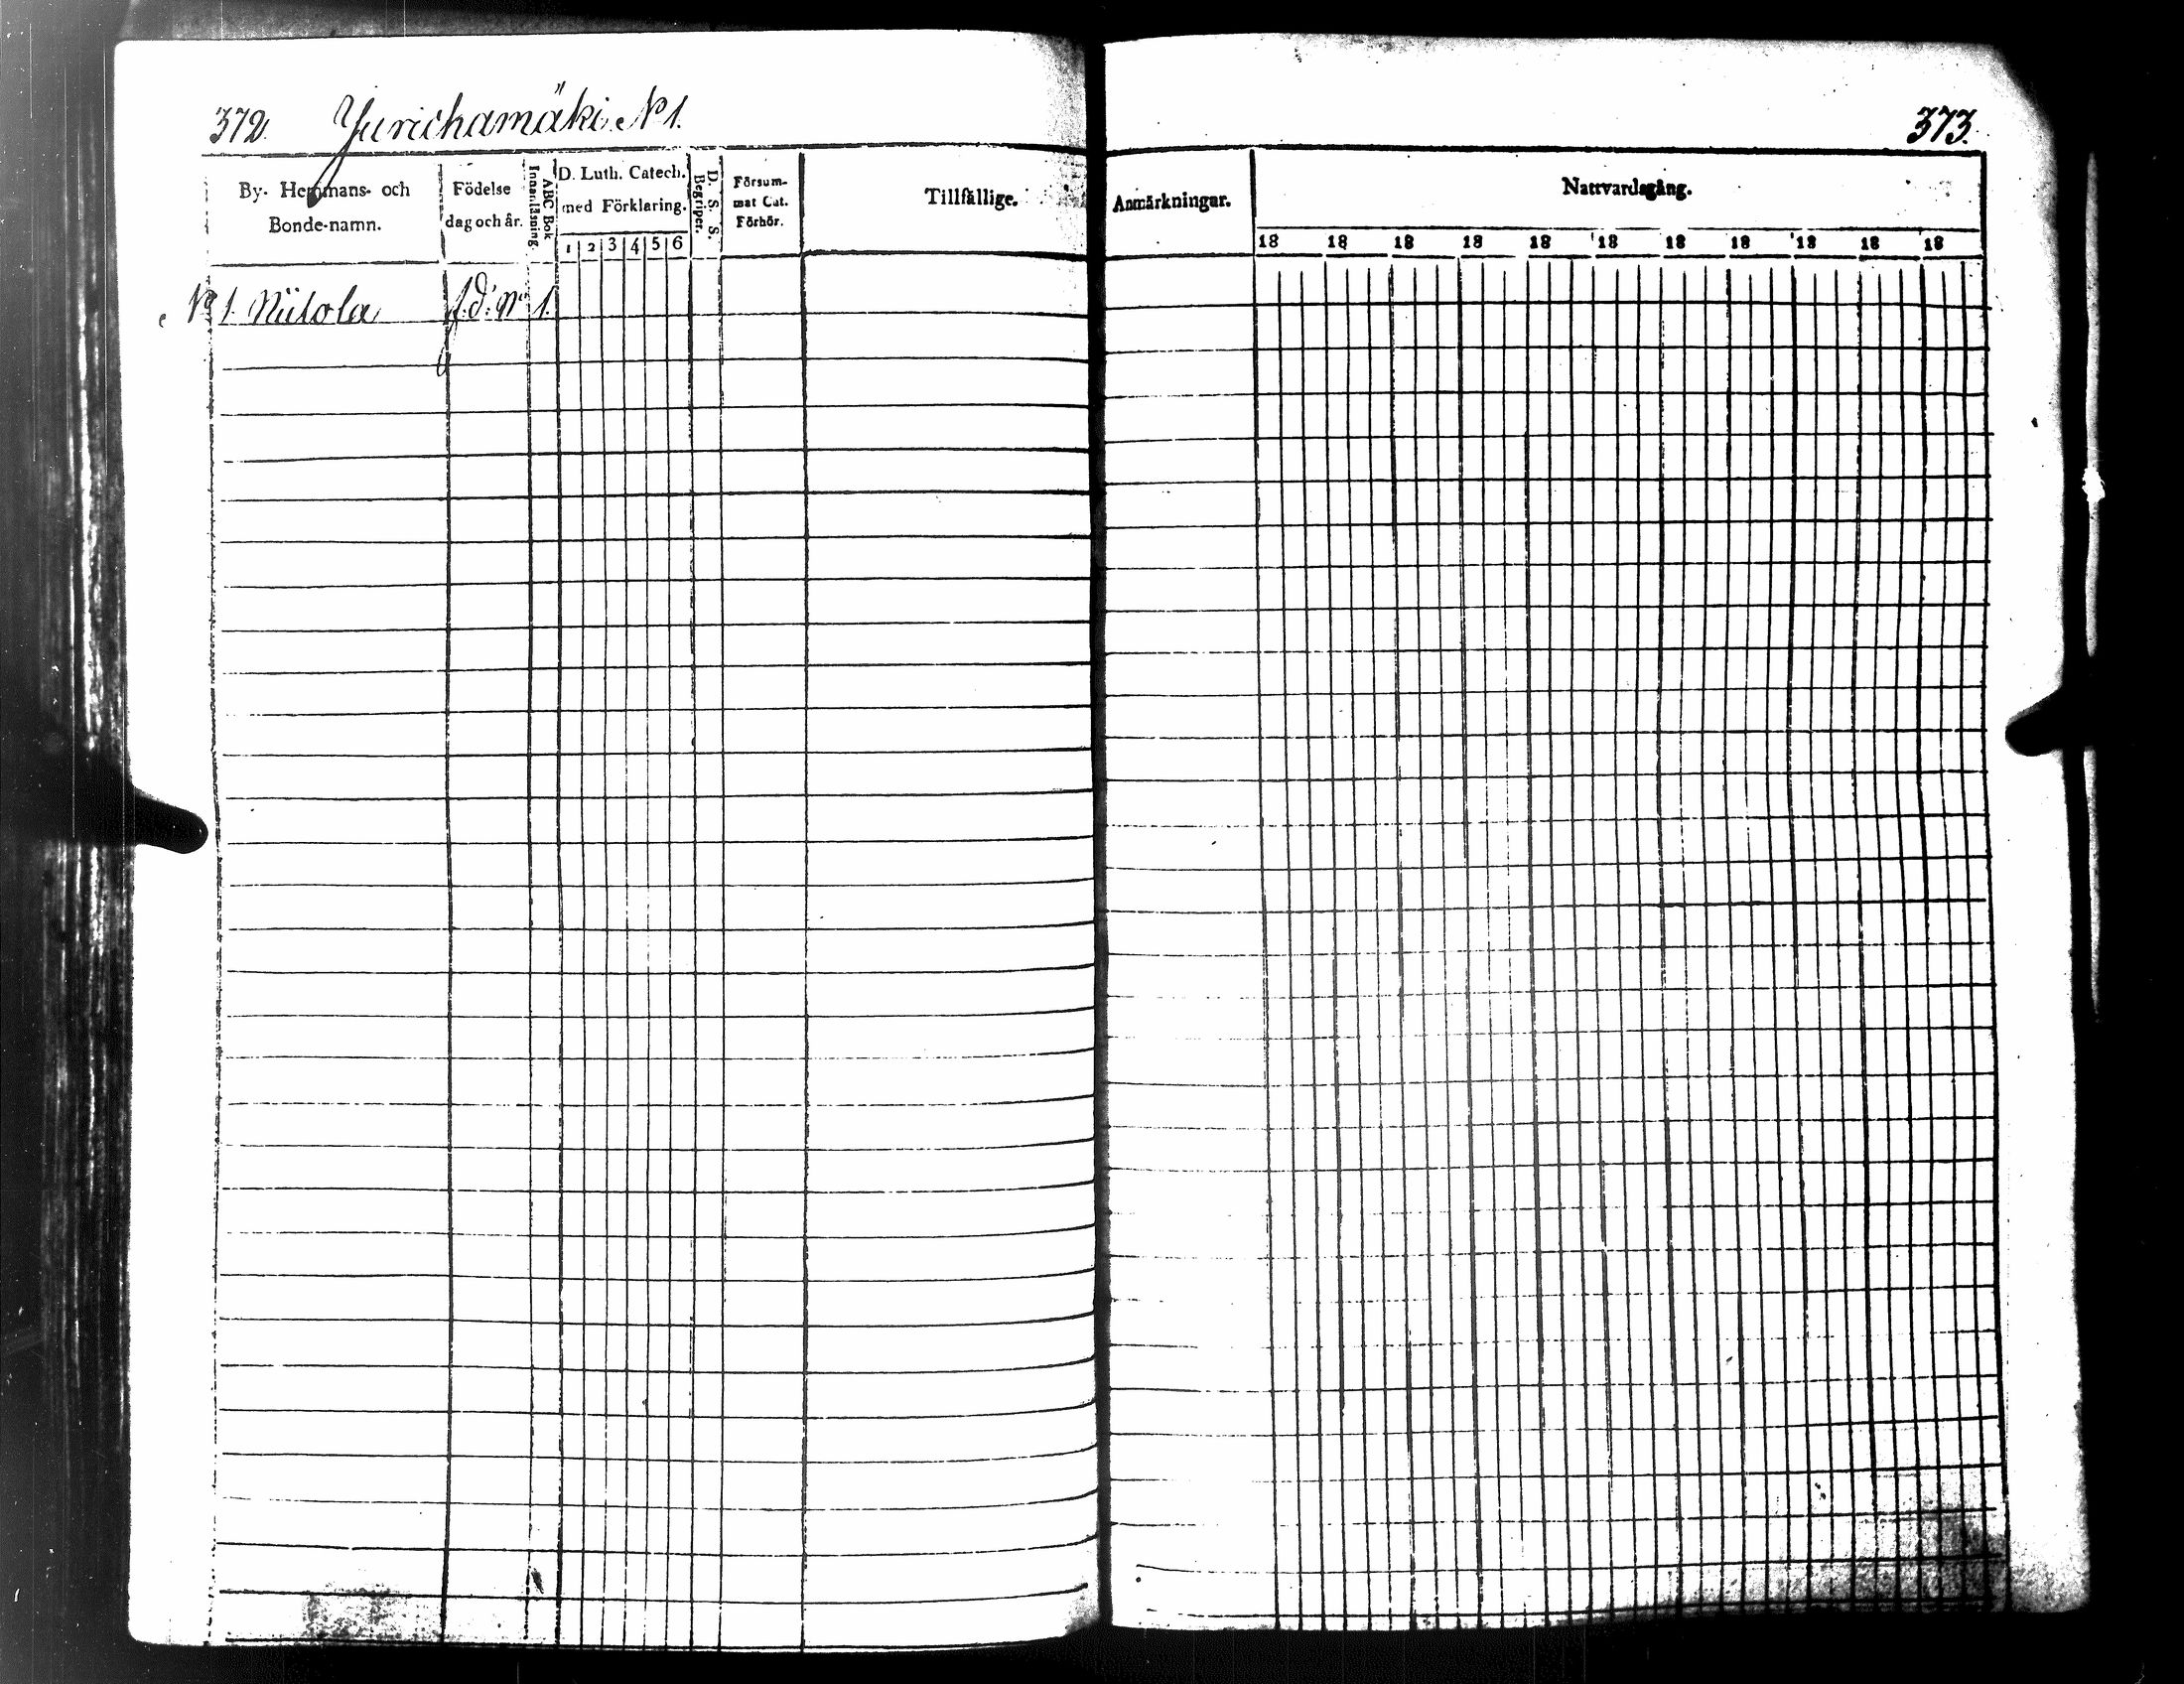 372. Jurichamäki N:o 1.
373.
By- Hemmans- och Bonde-namn.
Födelse dag och år.
ABC Bok Innanläsning.
D. Luth. Catech. med Förklaring.
1 2 3 4 5 6
D. S. S. Begriper.
Försum- mat Cat. Förhör.
Tillfällige.
Anmärkningar.
Nattvardsgång.
18 18 18 18 18 18 18 18 18 18 18
N:o 1. Niitola f. d. N:o 1.